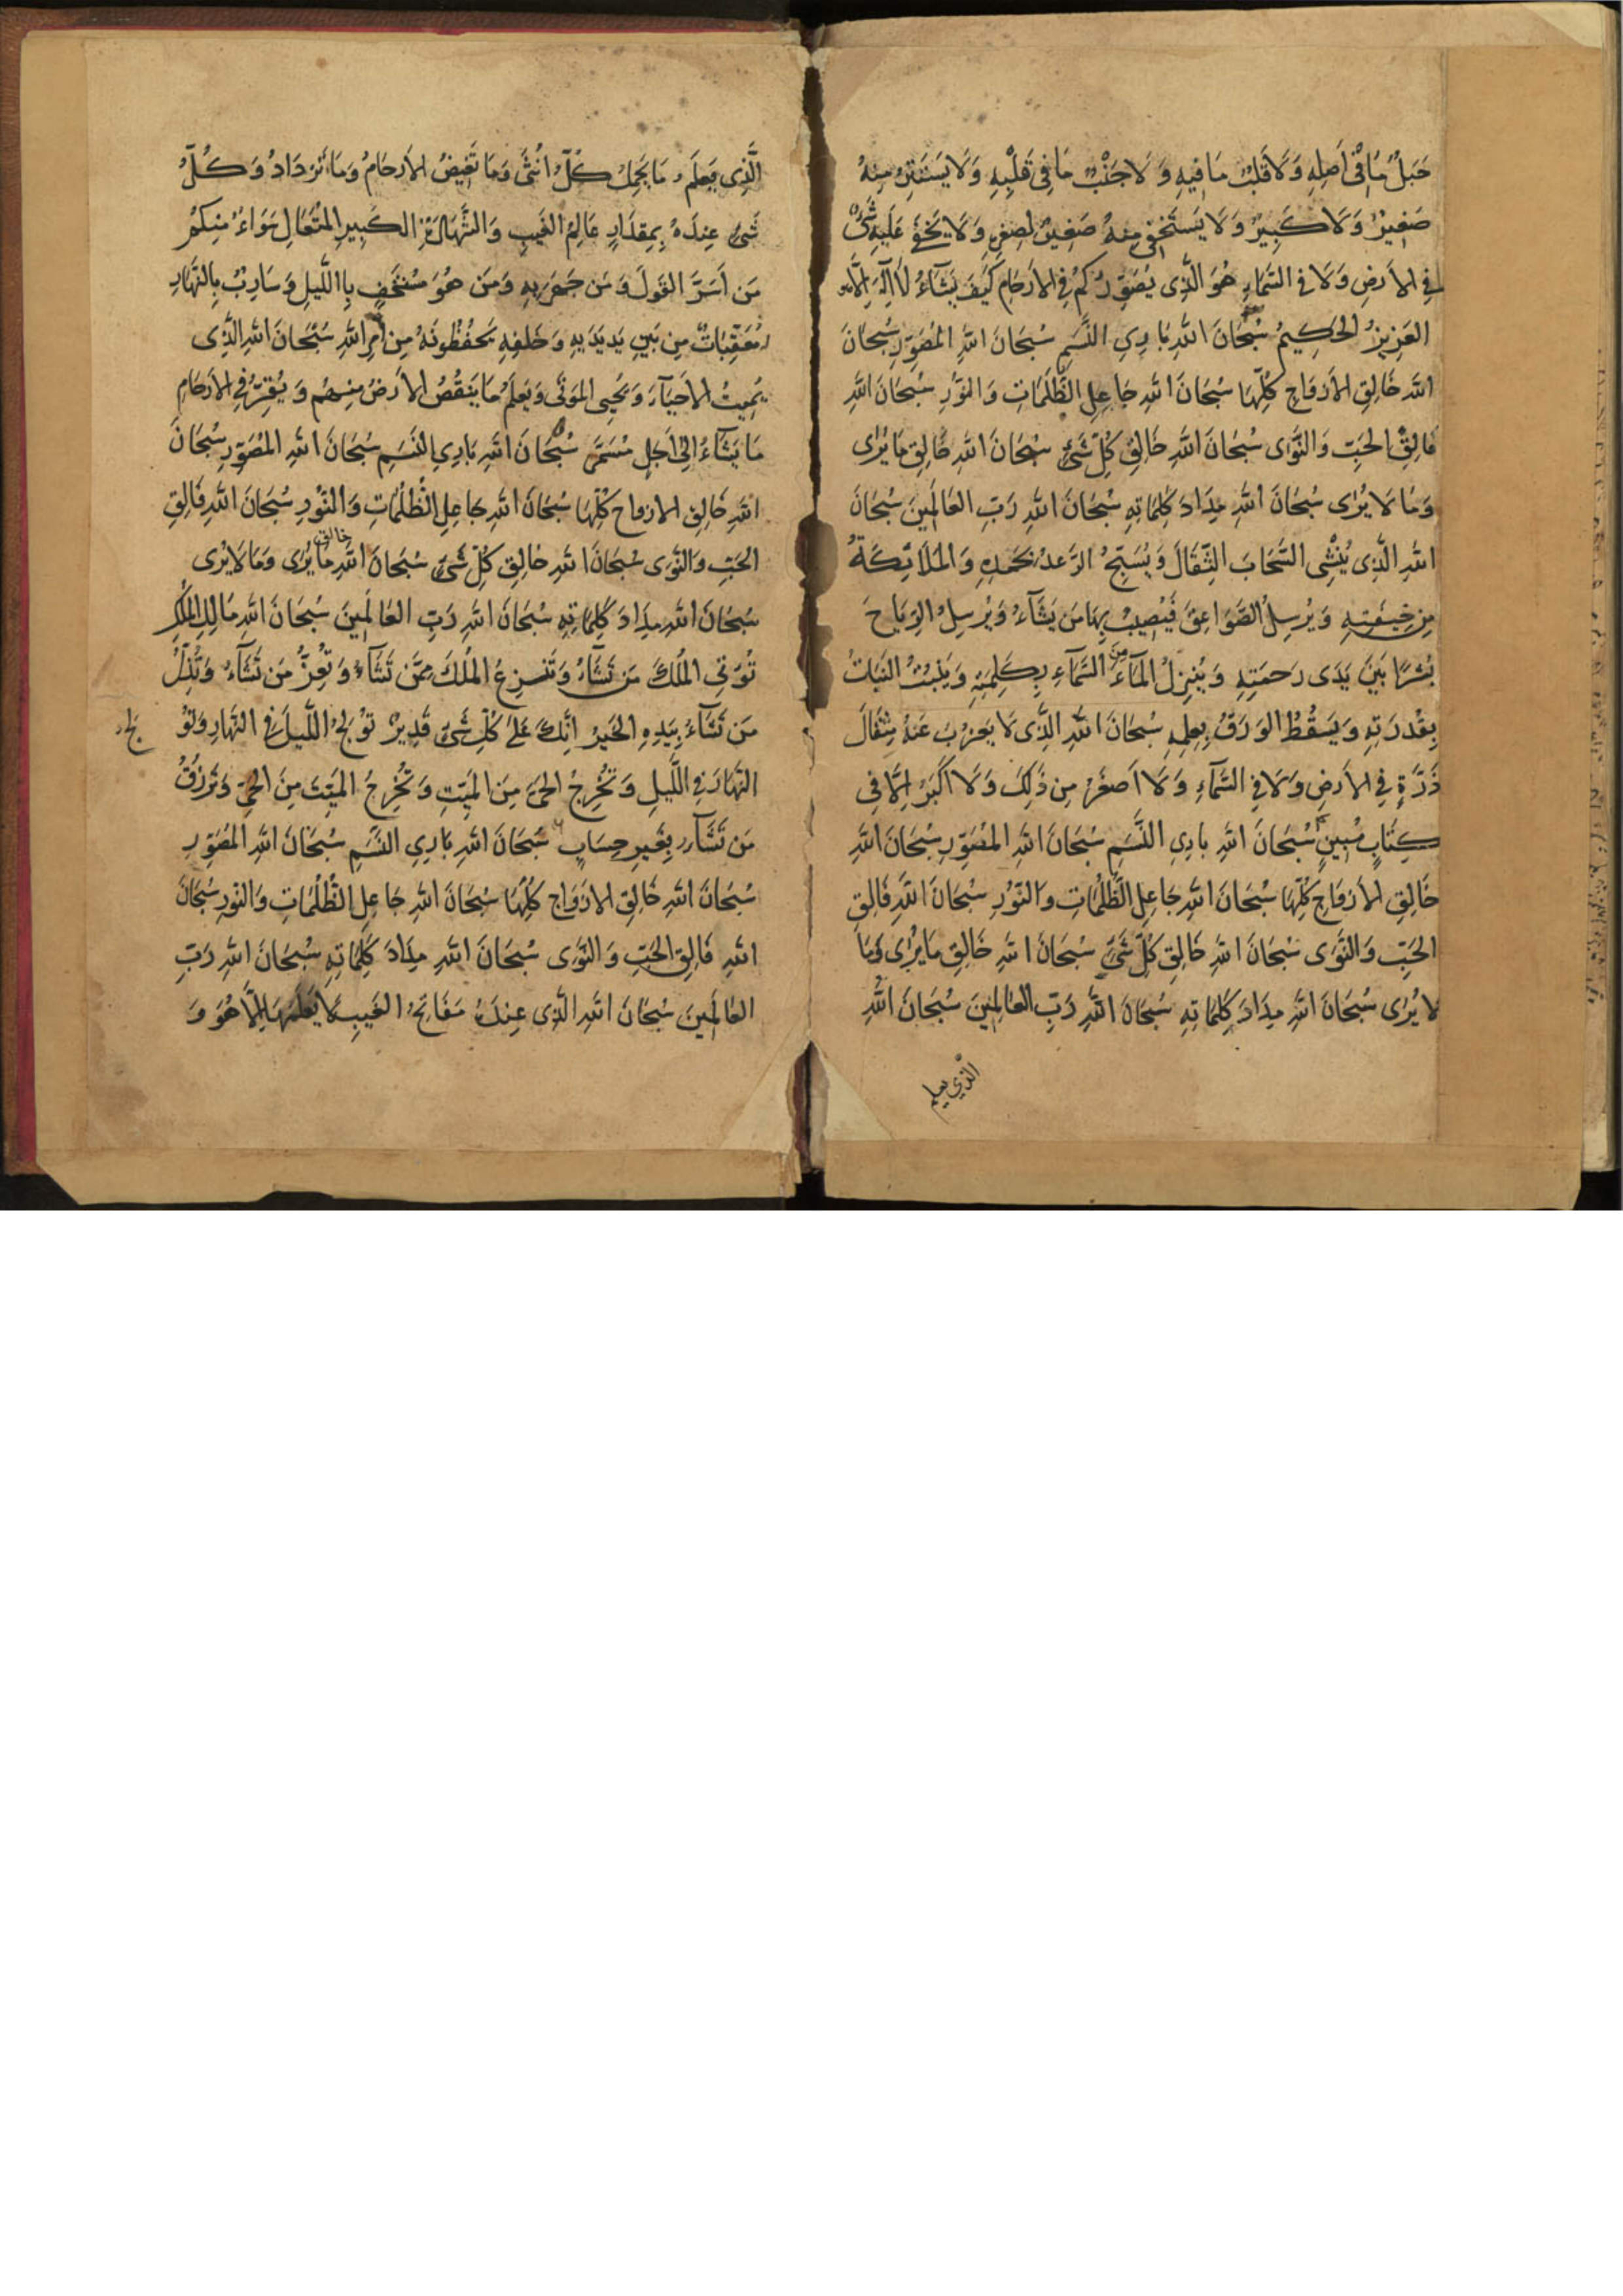 جَبَلٌ مَا فِي أَصْلِهِ وَلَا قَلْبٌ مَا فِيهِ وَلَا جَنْبٌ مَا فِي قَلْبِهِ وَلَا يَسْتَتِرُ مِنْهُ
صَغِيرٌ وَلَا كَبِيرٌ وَلَا يَسْتَخْفِي مِنْهُ صَغِيرٌ لِصِغَرِهِ وَلَا يَخْفَى عَلَيْهِ شَيْءٌ
فِي الْأَرْضِ وَلَا فِي السَّمَاءِ هُوَ الَّذِي يُصَوِّرُكُمْ فِي الْأَرْحَامِ كَيْفَ يَشَآءُ لَا إِلَهَ إِلَّا هُوَ
الْعَزِيزُ الْحَكِيمُ سُبْحَانَ اللّٰهِ بَارِيِ النَّسَمِ سُبْحَانَ اللّٰهِ الْمُصَوِّرِ سُبْحَانَ
اللّٰهِ خَالِقِ الْأَزْوَاجِ كُلِّهَا سُبْحَانَ اللّٰهِ جَاعِلِ الظُّلُمَاتِ وَالنُّورِ سُبْحَانَ اللّٰهِ
فَالِقِ الْحَبِّ وَالنَّوَى سُبْحَانَ اللّٰهِ خَالِقِ كُلِّ شَيْءٍ سُبْحَانَ اللّٰهِ خَالِقِ مَا يُرَى
وَمَا لَا يُرَى سُبْحَانَ اللّٰهِ مِدَادَ كَلِمَاتِهِ سُبْحَانَ اللّٰهِ رَبِّ الْعَالَمِينَ سُبْحَانَ
اللّٰهِ الَّذِي يُنْشِي السَّحَابَ الثِّقَالَ وَيُسَبِّحُ الرَّعْدُ بِحَمْدِهِ وَالْمَلَائِكَةُ
مِنْ خِيفَتِهِ وَيُرْسِلُ الصَّوَاعِقَ فَيُصِيبُ بِهَا مَنْ يَشَآءُ وَيُرْسِلُ الرِّيَاحَ
بُشْرًا بَيْنَ يَدَيْ رَحْمَتِهِ وَيُنْزِلُ الْمَآءَ مِنَ السَّمَآءِ بِكَلِمَتِهِ وَيَنْبُتُ النَّبَاتُ
بِقُدْرَتِهِ وَيَسْقُطُ الْوَرَقُ بِعِلْمِهِ سُبْحَانَ اللّٰهِ الَّذِي لَا يَعْزُبُ عَنْهُ مِثْقَالَ
ذَرَّةٍ فِي الْأَرْضِ وَلَا فِي السَّمَآءِ وَلَا أَصْغَرُ مِنْ ذَلِكَ وَلَا أَكْبَرُ إِلَّا فِي
كِتَابٍ مُبِينٍ سُبْحَانَ اللّٰهِ بَارِيِ النَّسَمِ سُبْحَانَ اللّٰهِ الْمُصَوِّرِ سُبْحَانَ اللّٰهِ
خَالِقِ الْأَزْوَاجِ كُلِّهَا سُبْحَانَ اللّٰهِ جَاعِلِ الظُّلُمَاتِ وَالنُّورِ سُبْحَانَ اللّٰهِ فَالِقِ
الْحَبِّ وَالنَّوَى سُبْحَانَ اللّٰهِ خَالِقِ كُلِّ شَيْءٍ سُبْحَانَ اللّٰهِ خَالِقِ مَا يُرَى وَمَا
لَا يُرَى سُبْحَانَ اللّٰهِ مِدَادَ كَلِمَاتِهِ سُبْحَانَ اللّٰهِ رَبِّ الْعَالَمِينَ سُبْحَانَ اللّٰهِ
الَّذِي يعلم
الَّذِي يَعْلَمُ مَا تَحْمِلُ كُلُّ أُنْثَى وَمَا تَغِيضُ الْأَرْحَامُ وَمَا تَزْدَادُ وَكُلُّ
شَيْءٍ عِنْدَهُ بِمِقْدَارٍ عَالِمُ الْغَيْبِ وَالشَّهَادَةِ الْكَبِيرِ الْمُتَعَالِ سَوَاءٌ مِنْكُمْ
مَنْ أَسَرَّ الْقَوْلَ وَمَنْ جَهَرَ بِهِ وَمَنْ هُوَ مُسْتَخْفٍ بِاللَّيْلِ وَسَارِبٌ بِالنَّهَارِ
مُعَقِّبَاتٌ مِنْ بَيْنِ يَدَيْهِ وَخَلْفِهِ يَحْفَظُونَهُ مِنْ أَمْرِ اللّٰهِ سُبْحَانَ اللّٰهِ الَّذِي
يُمِيتُ الْأَحْيَآءَ وَيُحْيِي الْمَوْتَى وَيَعْلَمُ مَا يَنْقُصُ الْأَرْضُ مِنْهُمْ وَيُقِرُّ فِي الْأَرْحَامِ
مَا يَشَآءُ إِلَى أَجَلٍ مُسَمًّى سُبْحَانَ اللّٰهِ بَارِيِ النَّسَمِ سُبْحَانَ اللّٰهِ الْمُصَوِّرِ سُبْحَانَ
اللّٰهِ خَالِقِ الْأَزْوَاجِ كُلِّهَا سُبْحَانَ اللّٰهِ جَاعِلِ الظُّلُمَاتِ وَالنُّورِ سُبْحَانَ اللّٰهِ فَالِقِ
الْحَبِّ وَالنَّوَى سُبْحَانَ اللّٰهِ خَالِقِ كُلِّ شَيْءٍ سُبْحَانَ اللّٰهِ خالق مَا يُرَى وَمَا لَا يُرَى
سُبْحَانَ اللّٰهِ مِدَادَ كَلِمَاتِهِ سُبْحَانَ اللّٰهِ رَبِّ الْعَالَمِينَ سُبْحَانَ اللّٰهِ مَالِكِ الْمُلْكِ
تُؤْتِي الْمُلْكَ مَنْ تَشَآءُ وَتَنْزِعُ الْمُلْكَ مِمَّنْ تَشَآءُ وَتُعِزُّ مَنْ تَشَآءُ وَتُذِلُّ
مَنْ تَشَآءُ بِيَدِهِ الْخَيْرُ إِنَّكَ عَلَى كُلِّ شَيْءٍ قَدِيرٌ تُولِجُ اللَّيْلَ فِي النَّهَارِ وَتُو لج
النَّهَارَ فِي اللَّيْلِ وَتُخْرِجُ الْحَيَّ مِنَ الْمَيِّتِ وَتُخْرِجُ الْمَيِّتَ مِنَ الْحَيِّ وَتَرْزُقُ
مَنْ تَشَآءُ بِغَيْرِ حِسَابٍ سُبْحَانَ اللّٰهِ بَارِيِ النَّسَمِ سُبْحَانَ اللّٰهِ الْمُصَوِّرِ
سُبْحَانَ اللّٰهِ خَالِقِ الْأَزْوَاجِ كُلِّهَا سُبْحَانَ اللّٰهِ جَاعِلِ الظُّلُمَاتِ وَالنُّورِ سُبْحَانَ
اللّٰهِ فَالِقِ الْحَبِّ وَالنَّوَى سُبْحَانَ اللّٰهِ مِدَادَ كَلِمَاتِهِ سُبْحَانَ اللّٰهِ رَبِّ
الْعَالَمِينَ سُبْحَانَ اللّٰهِ الَّذِي عِنْدَهُ مَفَاتِحُ الْغَيْبِ لَا يَعْلَمُهَا إِلَّا هُوَ وَ